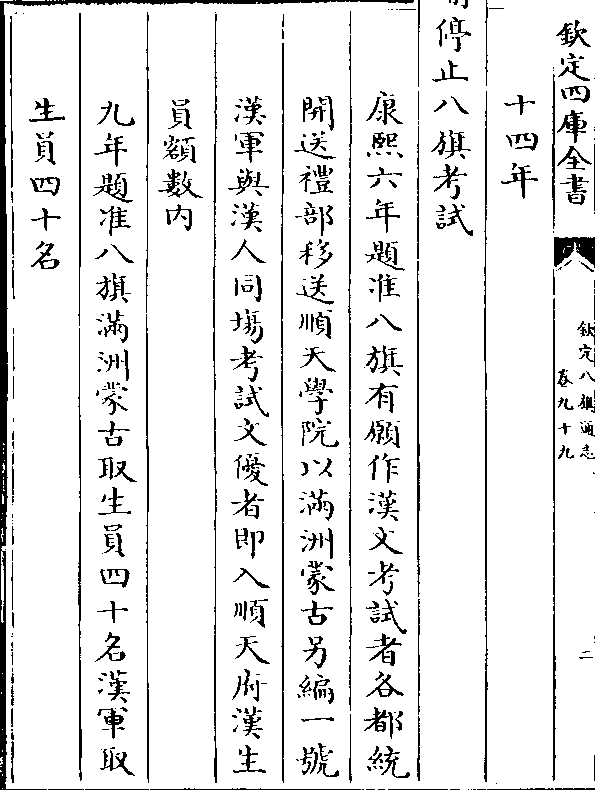 欽定四庫全書
欽定八旗通志
卷九十九
二
十四年
停止八旗考試
康熙六年題准八旗有願作漢文考試者各都統
開送禮部移送順天學院以滿洲蒙古另編一號
漢軍與漢人同場考試文優者即入順天府漢生
員額數內
九年題准八旗滿洲蒙古取生員四十名漢軍取
生員四十名